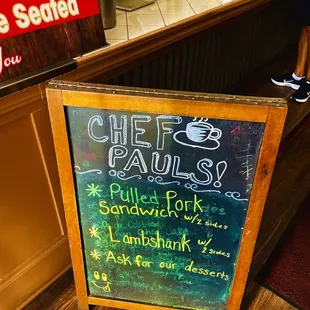 e Seated
Chef Paul
You
CHEF
PAULS!
* Pulled Pork
Sandwich w/2 sides
* Lambshank w/
2 sides
* Ask for our desserts